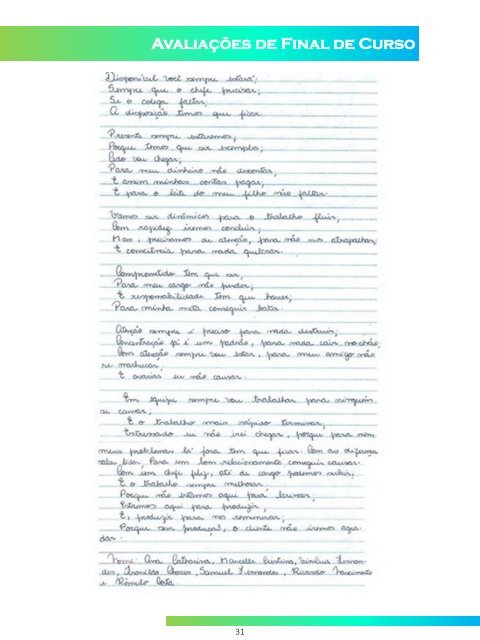 Avaliações de Final de Curso
Disponível você sempre estará;
Sempre que o chefe precisar;
Se o colega faltar;
A disposição temos que ficar.
Presente sempre estaremos;
Porque temos que ser exemplos;
Cedo vou chegar;
Para meu dinheiro não descontar;
E assim minhas contas pagar;
E para o leite do meu filho não faltar.
Vamos ser dinâmicos para o trabalho fluir;
Com rapidez iremos concluir;
Mas, precisamos de atenção, para não nos atrapalhar;
E consciência para nada quebrar.
Comprometido tem que ser,
Para meu cargo não perder;
E responsabilidade tem que haver,
Para minha meta conseguir bater.
Atenção sempre é preciso para nada destruir;
Concentração já é um padrão, para nada cair no chão;
Com atenção sempre vou estar, para meu amigo não
se machucar;
E avarias eu não causar.
Em equipe sempre vou trabalhar para ninguém
se cansar;
E o trabalho mais rápido terminar;
Estressado eu não irei chegar, porque para mim
meus problemas lá fora tem que ficar. Com as diferença
saber lidar, Para um bom relacionamento conseguir causar.
Com um chefe feliz, até de cargo podemos subir;
E o trabalho sempre melhorar;
Porque não estamos aqui para brincar,
Estamos aqui para produzir,
E, produzir para nos remunerar;
Porque sem produção, o cliente não iremos agra-
dar.
Nome: Ana Catharina, Marcelle Cristina, Vinicius Fernan-
des, Samuel Fernandes, Ricardo Nascimento
e Rômulo Costa.
31